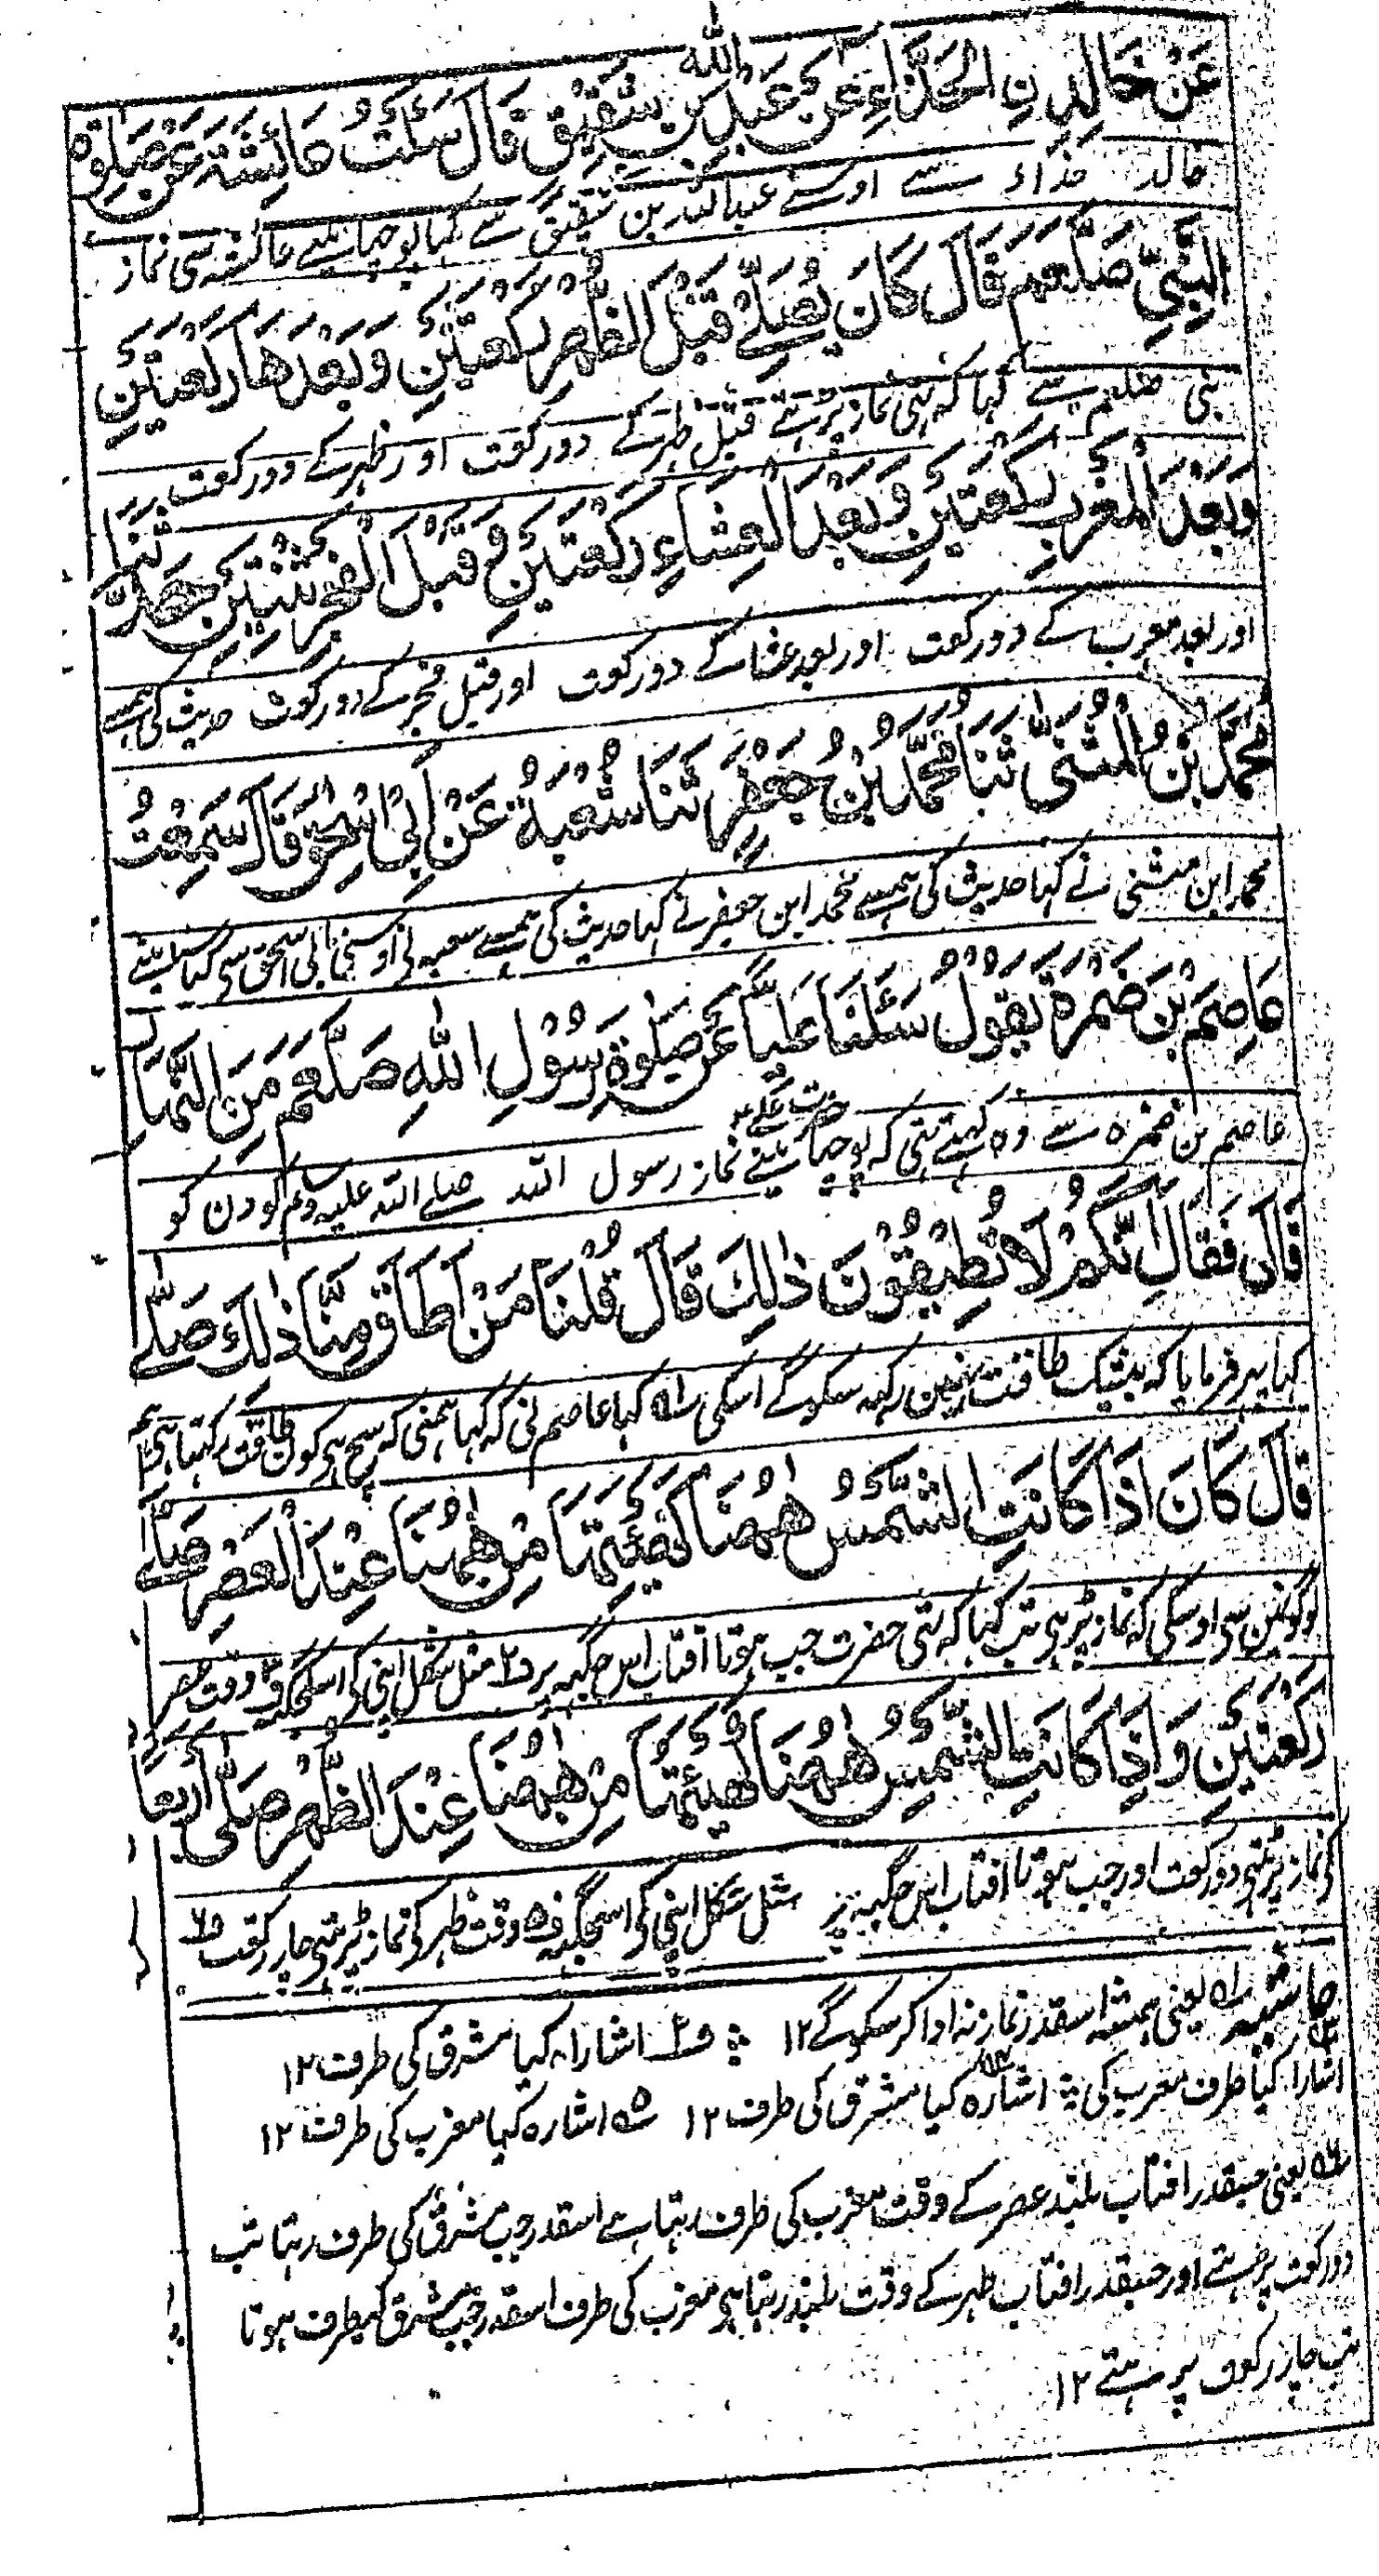 عَنْ خَالِدِ نِ الْحَذَّاءِ عَنْ عَبْدِ اللّٰه بْنِ شَقِيْقٍ قَالَ سَئَلْتُ عَائِشَةَ عَنْ صَلٰوةِ
خالد حذاء سے اوسنے عبداللہ بن شقیق سے کہا پوچھا مینے عائشہ سی نماز
النَّبِيِّ صَلَّعَمْ قَالَ كَانَ يُصَلِّيْ قَبْلَ الظُّهْرِ رَكْعَتَيْنِ وَبَعْدَهَا رَكْعَتَيْنِ
نبی صلعم سے کہا کہ تہی نماز پڑہتے قبل ظہر کے دو رکعت اور ظہر کے دو رکعت
وَبَعْدَ الْمَغْرِبِ رَكْعَتَيْنِ وَبَعْدَ الْعِشَاءِ رَكْعَتَيْنِ وَ قَبْلَ الْفَجْرِ ثِنْتَيْنِ حَدَّثَنَا
اور بعد مغرب کے دو رکعت اور بعد عشا کے دو رکعت اور قبل فجر کے دو رکعت حدیث کی ہمسے
مُحَمَّدُ بْنُ الْمُثَنّٰى ثَنَا مُحَمَّدُ بْنُ جَعْفَرٍ ثَنَا شُعْبَةُ عَنْ اَبِيْ اِسْحٰقَ قَالَ سَمِعْتُ
محمد ابن مثنی نے کہا حدیث کی ہمسے محمد ابن جعفر نے کہا حدیث کی ہمسے سعبہ نی اوسنی ابی اسحق سی کہا سنا مینے
عَاصِمَ بْنَ ضَمْرَةَ يَقُوْلُ سَئَلْنَا عَلِيًّا عَنْ صَلٰوةِ رَسُوْلِ اللّٰهِ صَلَّعَمْ مِنَ النَّهَارِ
عاصم بن ضمرہ سے وہ کہتے تہی کہ پوچھا مینے حضرت علے سے نماز رسول اللہ صلے اللہ علیہ وسلم کو دن کو
قَالَ فَقَالَ اِنَّكُمْ لَا تُطِيْقُوْنَ ذٰلِكَ قَالَ قُلْنَا مَنْ اَطَاقَ مِنَّا ذٰلِكَ صَلّٰے
کہا پہر فرمایا کہ بیشک طاقت نہین رکہہ سکوگے اسکی ۱ٮه کہا عاصم نی کہ کہا ہمنی کہ سچ ہی کون طاقت رکہتا ہی ہم
قَالَ كَانَ اِذَا كَانَتِ الشَّمْسُ هٰهُنَا كَهَيْئَتِهَا مِنْ هٰهُنَا عِنْدَ الْعَصْرِ صَلّٰے
لوگونمین سی اوسکی کہ نماز پڑہی تب کہا کہ تہی حضرت جب ہوتا آفتاب اس جگہہ پر ف۲ مثل شکل اپنی کی اسجگہہ وقت عصر
رَكْعَتَيْنِ وَاِذَا كَانَتِ الشَّمْسُ هٰهُنَا كَهَيْئَتِهَا مِنْ هٰهُنَا عِنْدَ الظُّهْرِ صَلّٰى اَرْبَعًا
کی نماز پڑہتی دو رکعت اور جب ہوتا آفتاب اس جگہہ پر مثل شکل اپنی کی اسجگہہ ف۵ وقت ظہر کی نماز پڑہتی چار رکعت ف۶
حاشیہ ۱ه یعنی ہمیشہ اسقدر نماز نہ ادا کر سکوگے ۱۲ ؞ ف۲ اشارا کیا مشرق کی طرف ۱۲
اشارا کیا طرف مغرب کی ؞ اشارہ کیا مشرق کی طرف ۱۲ ۵ه اشارہ کیا مغرب کی طرف ۱۲
۶ه یعنی جسقدر افتاب بلند عصر کے وقت مغرب کی طرف رہتا ہے اسقدر جب مشرق کی طرف رہتا تب
دو رکعت پڑہتے اور جسقدر افتاب ظہر کے وقت بلند رہتا ہی مغرب کی طرف اسقدر جب مشرق کیطرف ہوتا
تب چار رکعت پڑہتے ۱۲